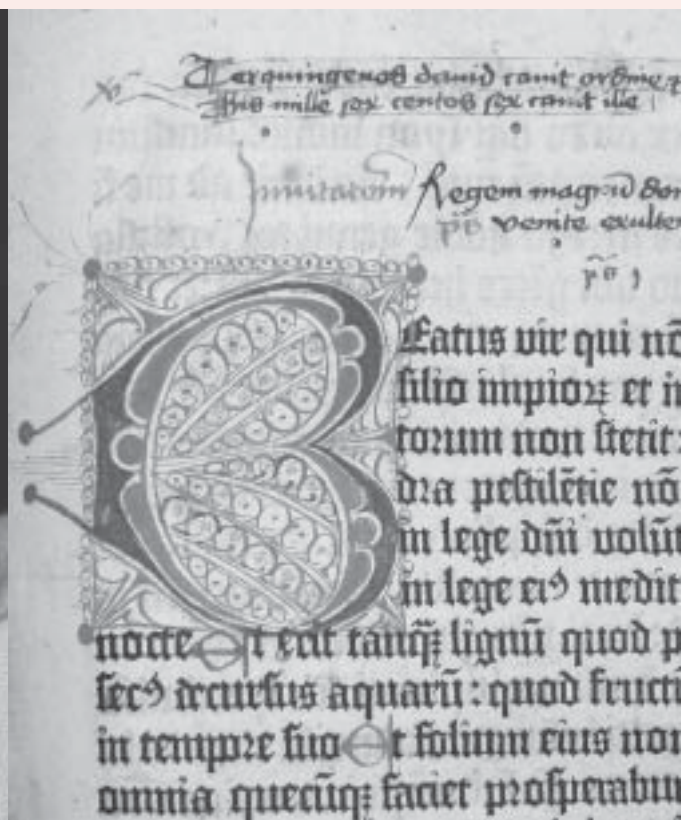 Terquingenos david canit ordine
His mille sex centos sex canit ille
Invitatorium Regem magnū
p̄s venite exulte
p̄s 1
Beatus vir qui nō
silio impioꝝ et in
torum non stetit:
dra pestilētie nō
in lege dn̄i volūt
in lege eiꝰ medit
nocte Et erit tanq̄ꝫ lignū quod p
secꝰ decursus aquarū: quod fructū
in tempore suo Et folium eius non
omnia quecūqꝫ faciet prosperabun